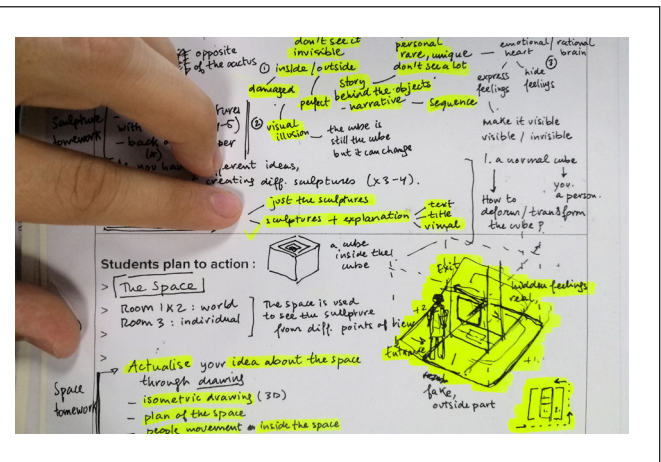 don't see it
invisible
personal
rare, unique
don't see a lot
emotional / rational
heart brain
③
opposite
of the cactus
① inside / outside
damaged
perfect
story
behind the objects
- narrative - sequence
express
feelings
hide
feelings
Sculpture
homework
with
- back
(or)
② visual
illusion
the cube is
still the cube
but it can change
make it visible
visible / invisible
ideas,
creating diff. sculptures (x3-4).
just the sculptures
sculptures + explanation
text
title
visual
1. a normal cube
you.
a person.
How to
deform / transform
the cube?
Students plan to action :
a cube
inside the
cube
> The Space
> Room 1&2 : world
Room 3 : individual
>
>
The space is used
to see the sculpture
from diff. points of view
Exit
hidden feelings
real,
+2
+1.
Entrance
fake,
outside part
Space
homework
Actualise your idea about the space
through drawing
- isometric drawing (3D)
- plan of the space
- people movement inside the space